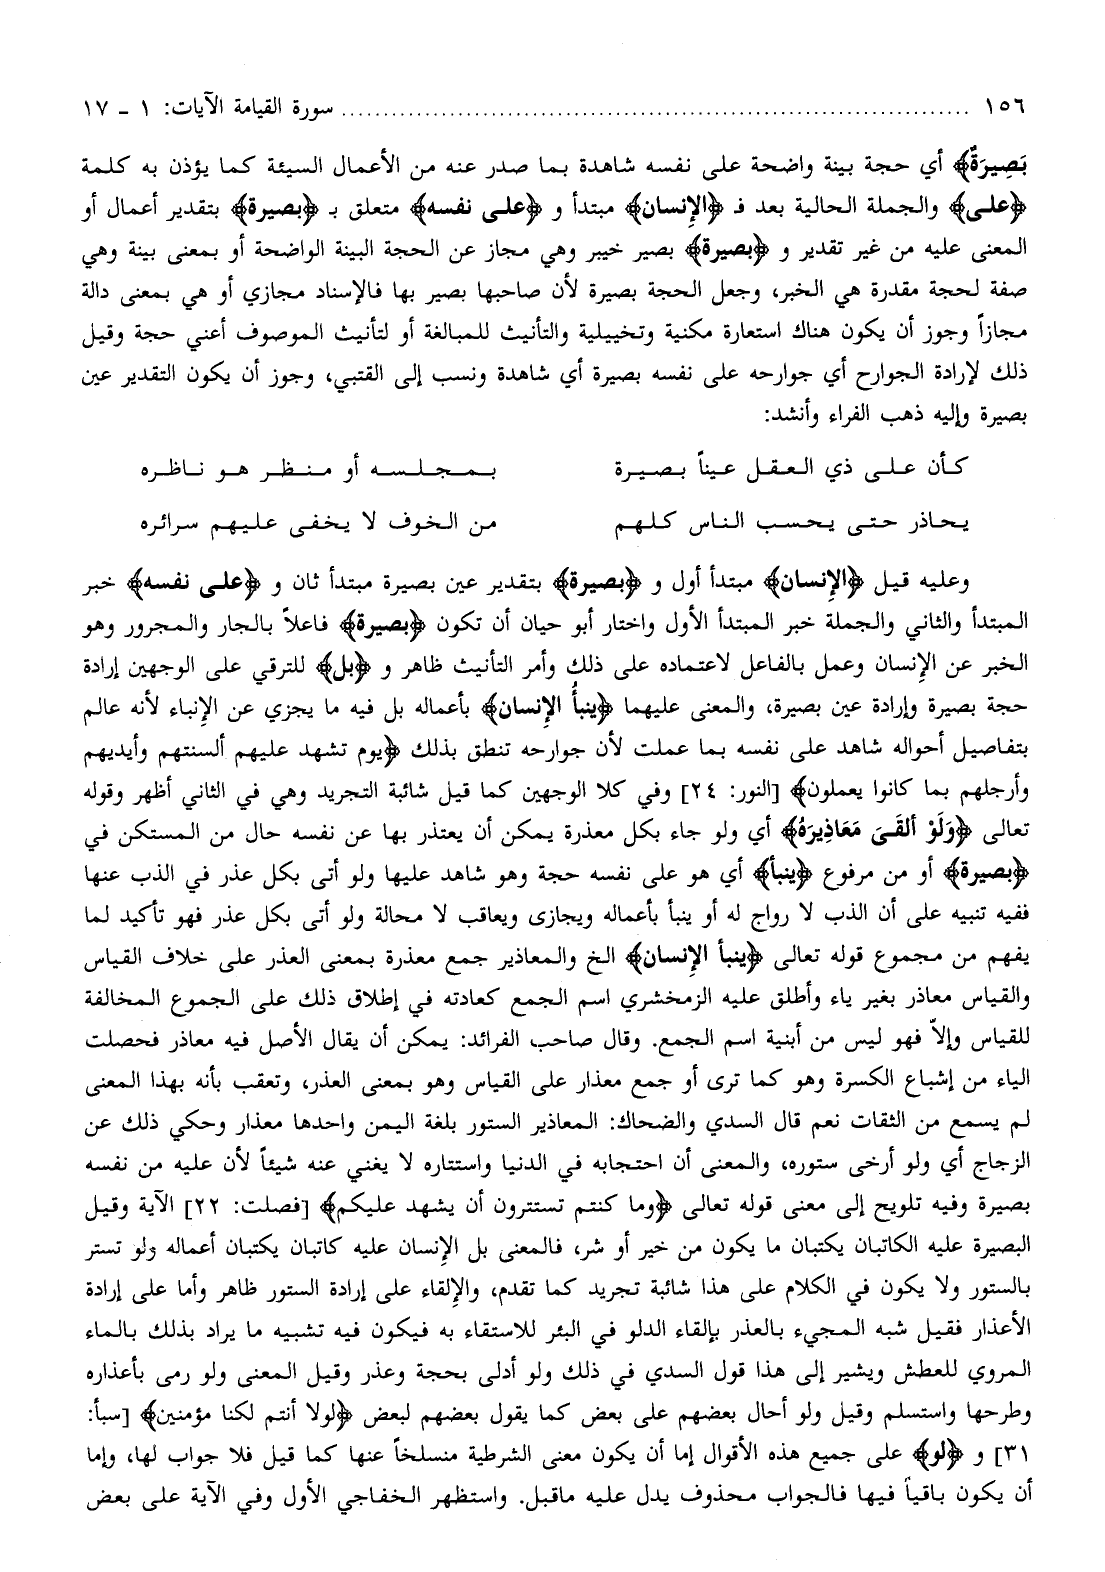 ١٥٦ ........................................................................ سورة القيامة الآيات: ١ ـ ١٧
بَصِيرَةٌ﴾ أي حجة بينة واضحة على نفسه شاهدة بما صدر عنه من الأعمال السيئة كما يؤذن به كلمة
﴿على﴾ والجملة الحالية بعد فـ ﴿الإنسان﴾ مبتدأ و ﴿على نفسه﴾ متعلق بـ ﴿بصيرة﴾ بتقدير أعمال أو
المعنى عليه من غير تقدير و ﴿بصيرة﴾ بصير خبير وهي مجاز عن الحجة البينة الواضحة أو بمعنى بينة وهي
صفة لحجة مقدرة هي الخبر، وجعل الحجة بصيرة لأن صاحبها بصير بها فالإسناد مجازي أو هي بمعنى دالة
مجازاً وجوز أن يكون هناك استعارة مكنية وتخييلية والتأنيث للمبالغة أو لتأنيث الموصوف أعني حجة وقيل
ذلك لإرادة الجوارح أي جوارحه على نفسه بصيرة أي شاهدة ونسب إلى القتبي، وجوز أن يكون التقدير عين
بصيرة وإليه ذهب الفراء وأنشد:
كأن على ذي العقل عيناً بصيرة بمجلسه أو منظر هو ناظره
يحاذر حتى يحسب الناس كلهم من الخوف لا يخفى عليهم سرائره
وعليه قيل ﴿الإنسان﴾ مبتدأ أول و ﴿بصيرة﴾ بتقدير عين بصيرة مبتدأ ثان و ﴿على نفسه﴾ خبر
المبتدأ والثاني والجملة خبر المبتدأ الأول واختار أبو حيان أن تكون ﴿بصيرة﴾ فاعلاً بالجار والمجرور وهو
الخبر عن الإنسان وعمل بالفاعل لاعتماده على ذلك وأمر التأنيث ظاهر و ﴿بل﴾ للترقي على الوجهين إرادة
حجة بصيرة وإرادة عين بصيرة، والمعنى عليهما ﴿ينبأُ الإنسان﴾ بأعماله بل فيه ما يجزي عن الإنباء لأنه عالم
بتفاصيل أحواله شاهد على نفسه بما عملت لأن جوارحه تنطق بذلك ﴿يوم تشهد عليهم ألسنتهم وأيديهم
وأرجلهم بما كانوا يعملون﴾ [النور: ٢٤] وفي كلا الوجهين كما قيل شائبة التجريد وهي في الثاني أظهر وقوله
تعالى ﴿وَلَوْ ألقَىَ مَعَاذِيرَهُ﴾ أي ولو جاء بكل معذرة يمكن أن يعتذر بها عن نفسه حال من المستكن في
﴿بصيرة﴾ أو من مرفوع ﴿ينبأ﴾ أي هو على نفسه حجة وهو شاهد عليها ولو أتى بكل عذر في الذب عنها
ففيه تنبيه على أن الذب لا رواج له أو ينبأ بأعماله ويجازى ويعاقب لا محالة ولو أتى بكل عذر فهو تأكيد لما
يفهم من مجموع قوله تعالى ﴿ينبأ الإنسان﴾ الخ والمعاذير جمع معذرة بمعنى العذر على خلاف القياس
والقياس معاذر بغير ياء وأطلق عليه الزمخشري اسم الجمع كعادته في إطلاق ذلك على الجموع المخالفة
للقياس وإلاّ فهو ليس من أبنية اسم الجمع. وقال صاحب الفرائد: يمكن أن يقال الأصل فيه معاذر فحصلت
الياء من إشباع الكسرة وهو كما ترى أو جمع معذار على القياس وهو بمعنى العذر، وتعقب بأنه بهذا المعنى
لم يسمع من الثقات نعم قال السدي والضحاك: المعاذير الستور بلغة اليمن واحدها معذار وحكي ذلك عن
الزجاج أي ولو أرخى ستوره، والمعنى أن احتجابه في الدنيا واستتاره لا يغني عنه شيئاً لأن عليه من نفسه
بصيرة وفيه تلويح إلى معنى قوله تعالى ﴿وما كنتم تستترون أن يشهد عليكم﴾ [فصلت: ٢٢] الآية وقيل
البصيرة عليه الكاتبان يكتبان ما يكون من خير أو شر، فالمعنى بل الإنسان عليه كاتبان يكتبان أعماله ولو تستر
بالستور ولا يكون في الكلام على هذا شائبة تجريد كما تقدم، والإلقاء على إرادة الستور ظاهر وأما على إرادة
الأعذار فقيل شبه المجيء بالعذر بإلقاء الدلو في البئر للاستقاء به فيكون فيه تشبيه ما يراد بذلك بالماء
المروي للعطش ويشير إلى هذا قول السدي في ذلك ولو أدلى بحجة وعذر وقيل المعنى ولو رمى بأعذاره
وطرحها واستسلم وقيل ولو أحال بعضهم على بعض كما يقول بعضهم لبعض ﴿لولا أنتم لكنا مؤمنين﴾ [سبأ:
٣١] و ﴿لو﴾ على جميع هذه الأقوال إما أن يكون معنى الشرطية منسلخاً عنها كما قيل فلا جواب لها، وإما
أن يكون باقياً فيها فالجواب محذوف يدل عليه ماقبل. واستظهر الخفاجي الأول وفي الآية على بعض